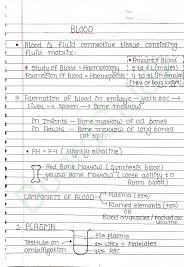 BLOOD
Blood is fluid connective tissue consisting
fluid matrix.
Amount of Blood
Study of Blood = Haematology 5 to 6 L (males)
Formation of Blood = Haemopoiesis 4 to 5L in females
Formation of blood in embryo → yolk sac →
Liver → spleen → Bone marrow
In Infants - Bone marrow of all bones
In Adults - Bone marrow of long bones
PH = 7.4 (slightly alkaline)
Red Bone Marrow (synthesis blood)
Yellow Bone Marrow (loose ability to
form blood)
COMPONENTS OF BLOOD
Plasma (55%)
Formed elements (45%)
OR
Blood corpuscles / packed cell
volume.
1. PLASMA
Testtube on
centrifugation
55% plasma
1% WBCs + Platelets
45% RBC